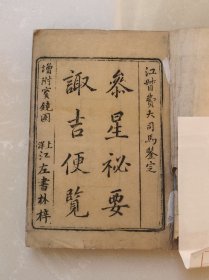 江甯費大司馬鑒定
參星祕要
諏吉便覽
增附寳鏡圖
上洋江左書林梓